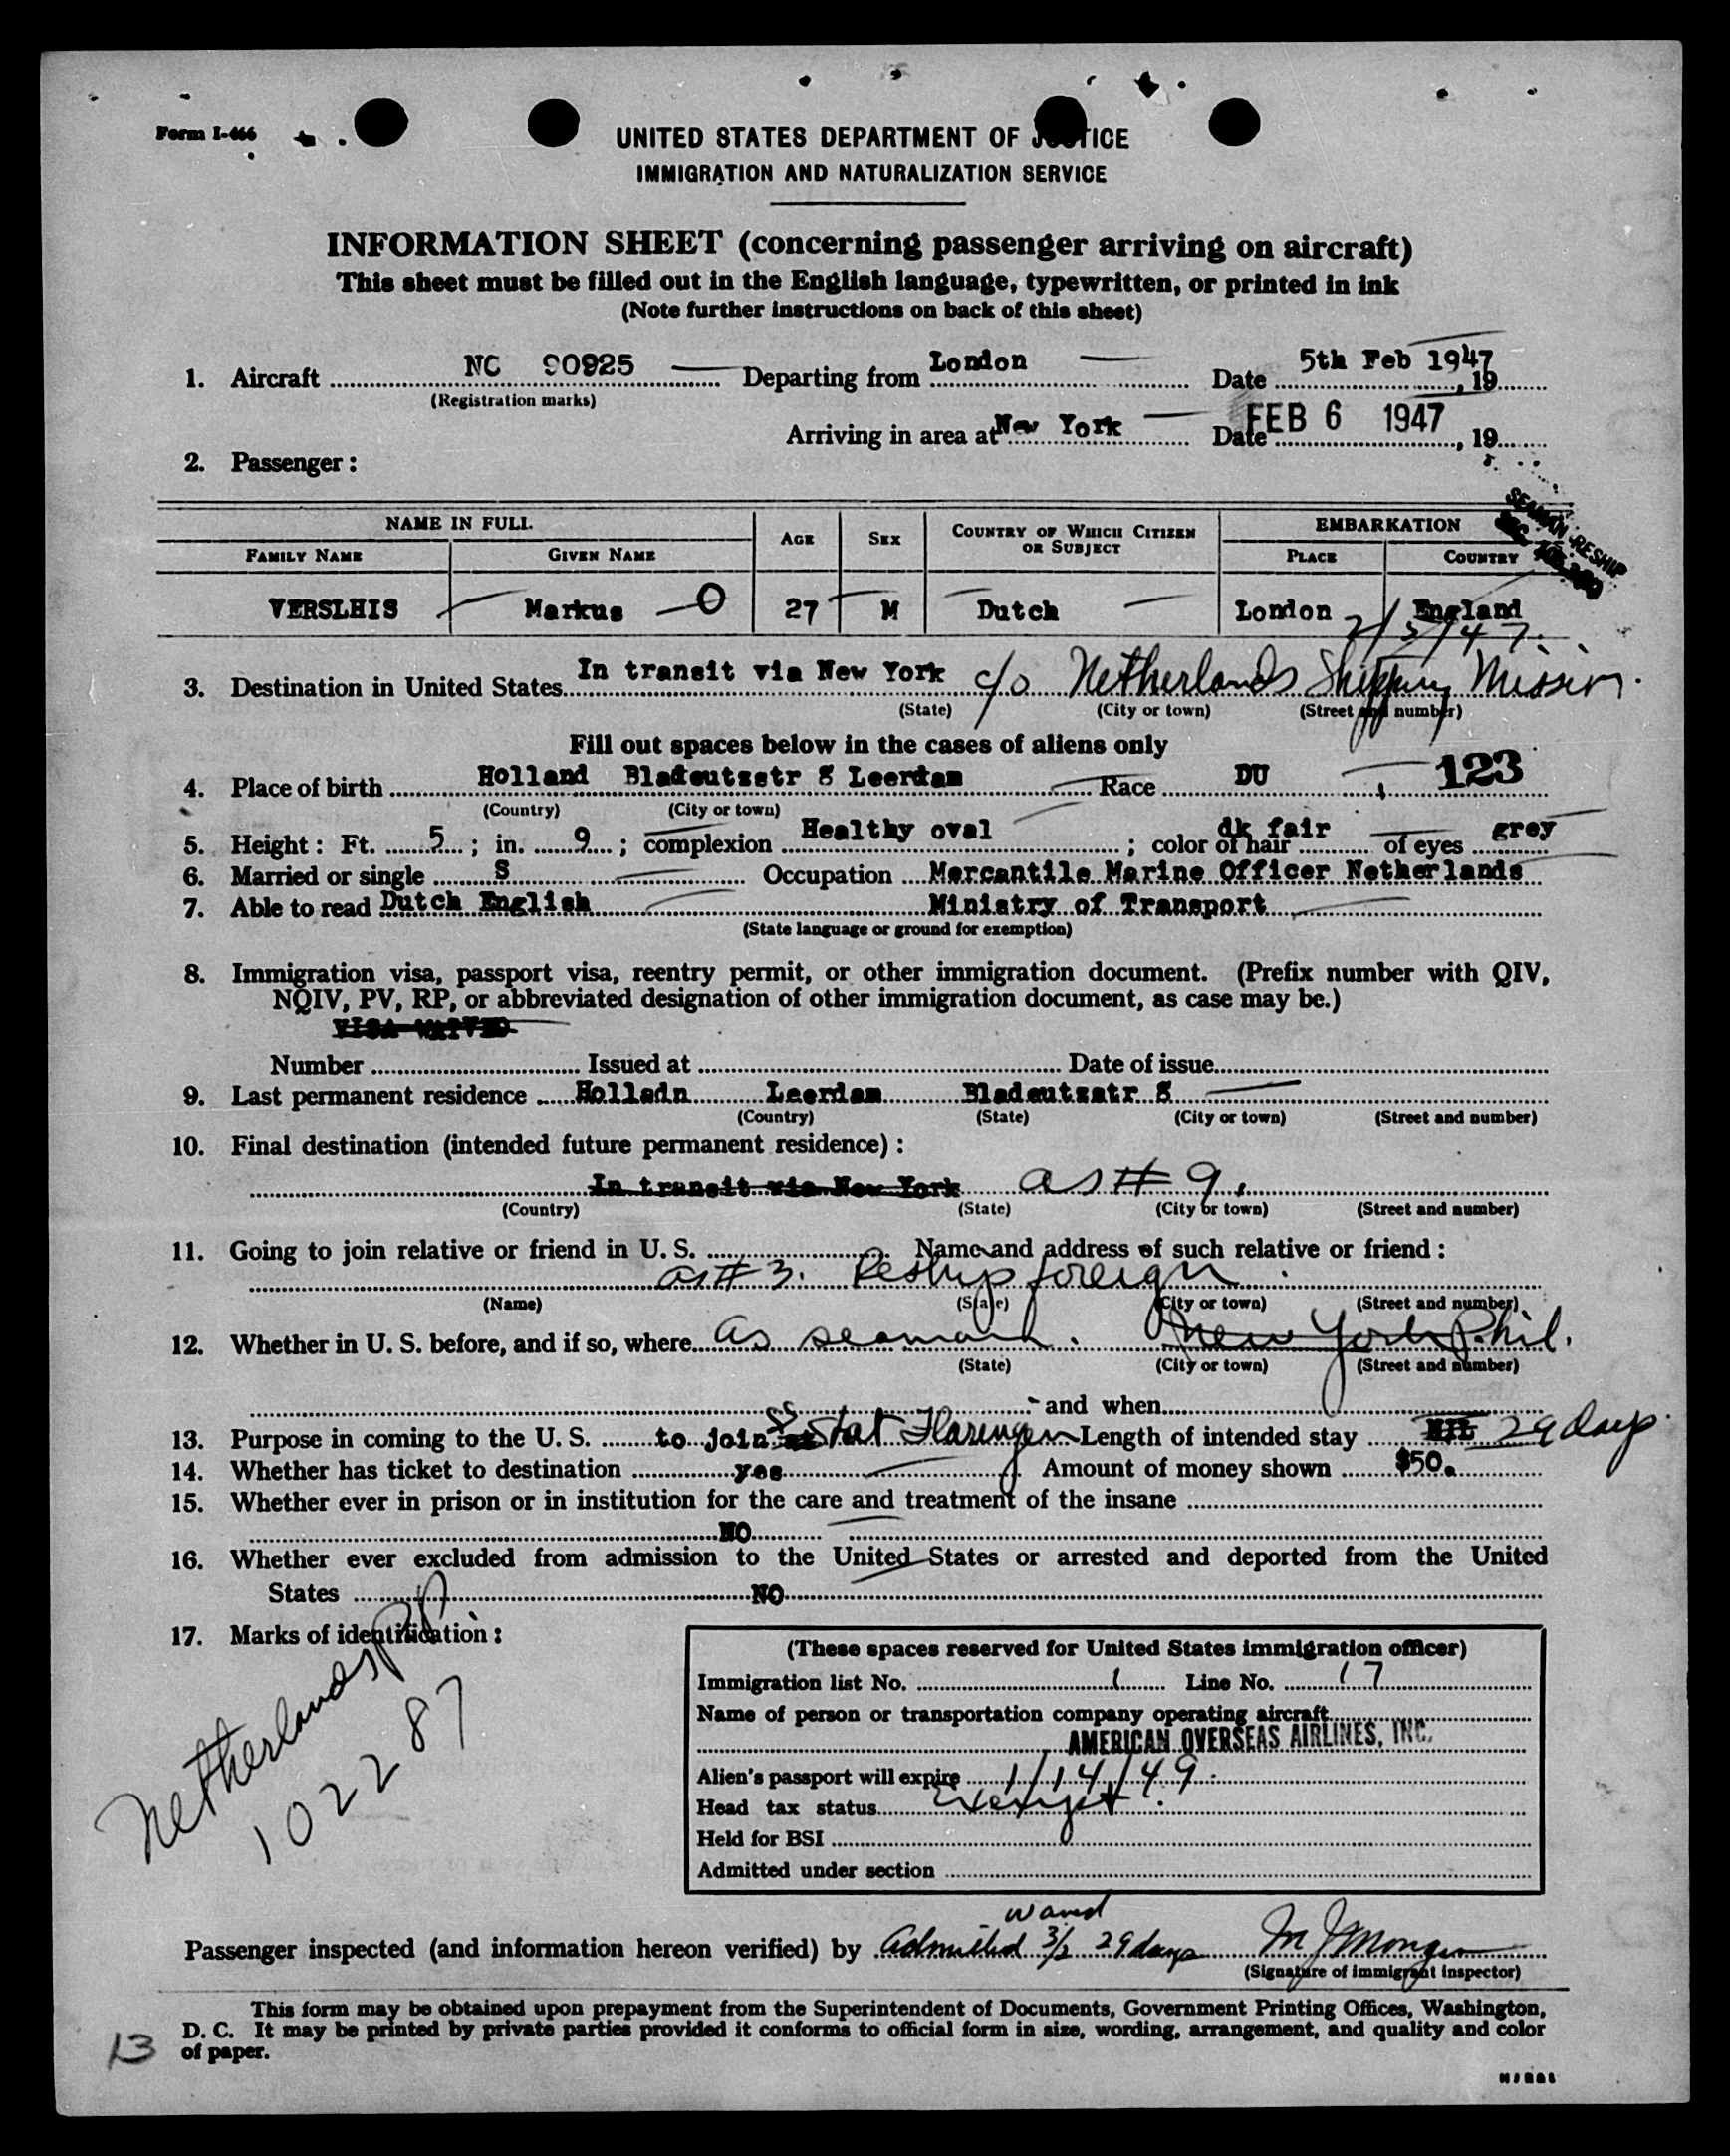 Form I-466
UNITED STATES DEPARTMENT OF JUSTICE
IMMIGRATION AND NATURALIZATION SERVICE
INFORMATION SHEET (concerning passenger arriving on aircraft)
This sheet must be filled out in the English language, typewritten, or printed in ink
(Note further instructions on back of this sheet)
1. Aircraft NC 90925 Departing from London Date 5th Feb 1947, 19
(Registration marks)
Arriving in area at New York Date FEB 6 1947, 19
2. Passenger:
SEAMAN RESHIP
NAME IN FULL AGE SEX COUNTRY OF WHICH CITIZEN OR SUBJECT EMBARKATION
FAMILY NAME GIVEN NAME PLACE COUNTRY
VERSLHIS Markus O 27 M Dutch London England
3. Destination in United States In transit via New York c/o Netherlands Shipping Mission.
(State) (City or town) (Street and number)
Fill out spaces below in the cases of aliens only
4. Place of birth Holland Bladeutsstr 8 Leerdam Race DU 123
(Country) (City or town)
5. Height: Ft. 5; in. 9; complexion Healthy oval; color of hair dk fair of eyes grey
6. Married or single S Occupation Mercantile Marine Officer Netherlands
7. Able to read Dutch English Ministry of Transport
(State language or ground for exemption)
8. Immigration visa, passport visa, reentry permit, or other immigration document. (Prefix number with QIV,
NQIV, PV, RP, or abbreviated designation of other immigration document, as case may be.)
VISA WAIVED
Number Issued at Date of issue
9. Last permanent residence Holladn Leerdam Bladeutsstr 8
(Country) (State) (City or town) (Street and number)
10. Final destination (intended future permanent residence):
In transit via New York as # 9.
(Country) (State) (City or town) (Street and number)
11. Going to join relative or friend in U. S. Name and address of such relative or friend:
as # 3. Reship foreign
(Name) (State) (City or town) (Street and number)
12. Whether in U. S. before, and if so, where as seaman. New York Phil.
(State) (City or town) (Street and number)
and when
13. Purpose in coming to the U. S. to join SS Stat Length of intended stay NIL 29 days
14. Whether has ticket to destination yes Amount of money shown $50.
15. Whether ever in prison or in institution for the care and treatment of the insane
NO
16. Whether ever excluded from admission to the United States or arrested and deported from the United
States NO
17. Marks of identification:
Netherlands PP
102287
(These spaces reserved for United States immigration officer)
Immigration list No. 1 Line No. 17
Name of person or transportation company operating aircraft
AMERICAN OVERSEAS AIRLINES, INC.
Alien's passport will expire 1/14/49
Head tax status Exempt
Held for BSI
Admitted under section
waved
Passenger inspected (and information hereon verified) by Admitted 3/2 29 days
(Signature of immigrant inspector)
This form may be obtained upon prepayment from the Superintendent of Documents, Government Printing Offices, Washington,
D. C. It may be printed by private parties provided it conforms to official form in size, wording, arrangement, and quality and color
of paper.
13